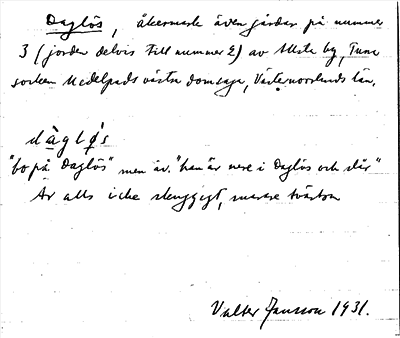 Daglös, åkermark även gårdar på nummer
3 (jorden delvis till nummer 2) av Allsta by, Tuna
socken Medelpads västra domsaga, Västernorrlands län.
dàglǫ́s
"bo på Daglös" men äv. "han är nere i Daglös och slår"
Är alls icke skuggigt, snarare tvärtom
Valter Jansson 1931.